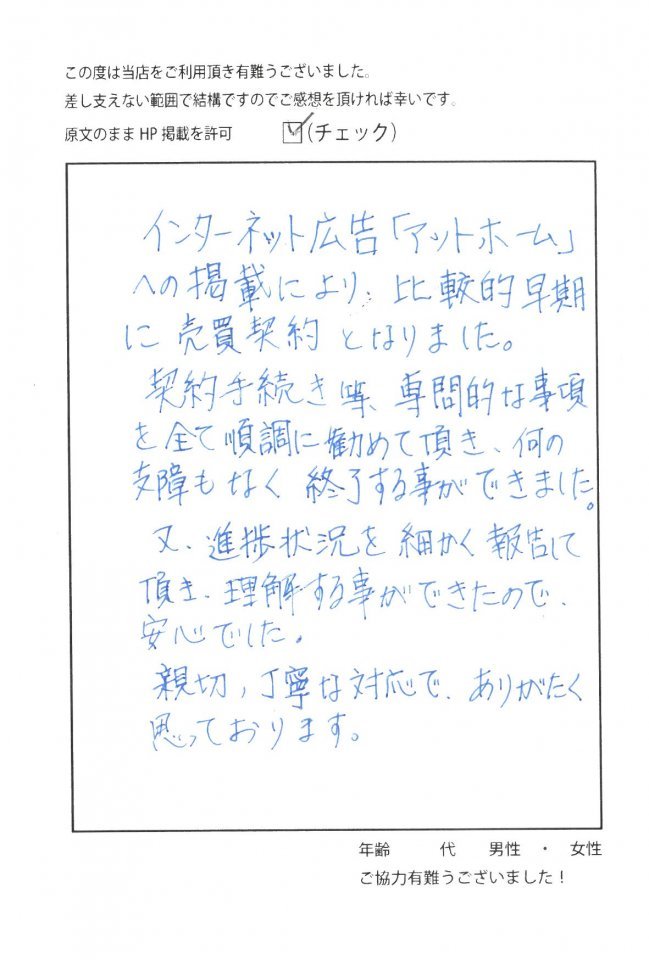 この度は当店をご利用頂き有難うございました。
差し支えない範囲で結構ですのでご感想を頂ければ幸いです。
原文のまま HP 掲載を許可 (チェック)
インターネット広告「アットホーム」
への掲載により、比較的早期
に売買契約となりました。
契約手続き等、専問的な事項
を全て順調に勧めて頂き、何の
支障もなく終了する事ができました。
又、進捗状況を細かく報告して
頂き、理解する事ができたので、
安心でした。
親切、丁寧な対応で、ありがたく
思っております。
年齢 代 男性 ・ 女性
ご協力有難うございました！